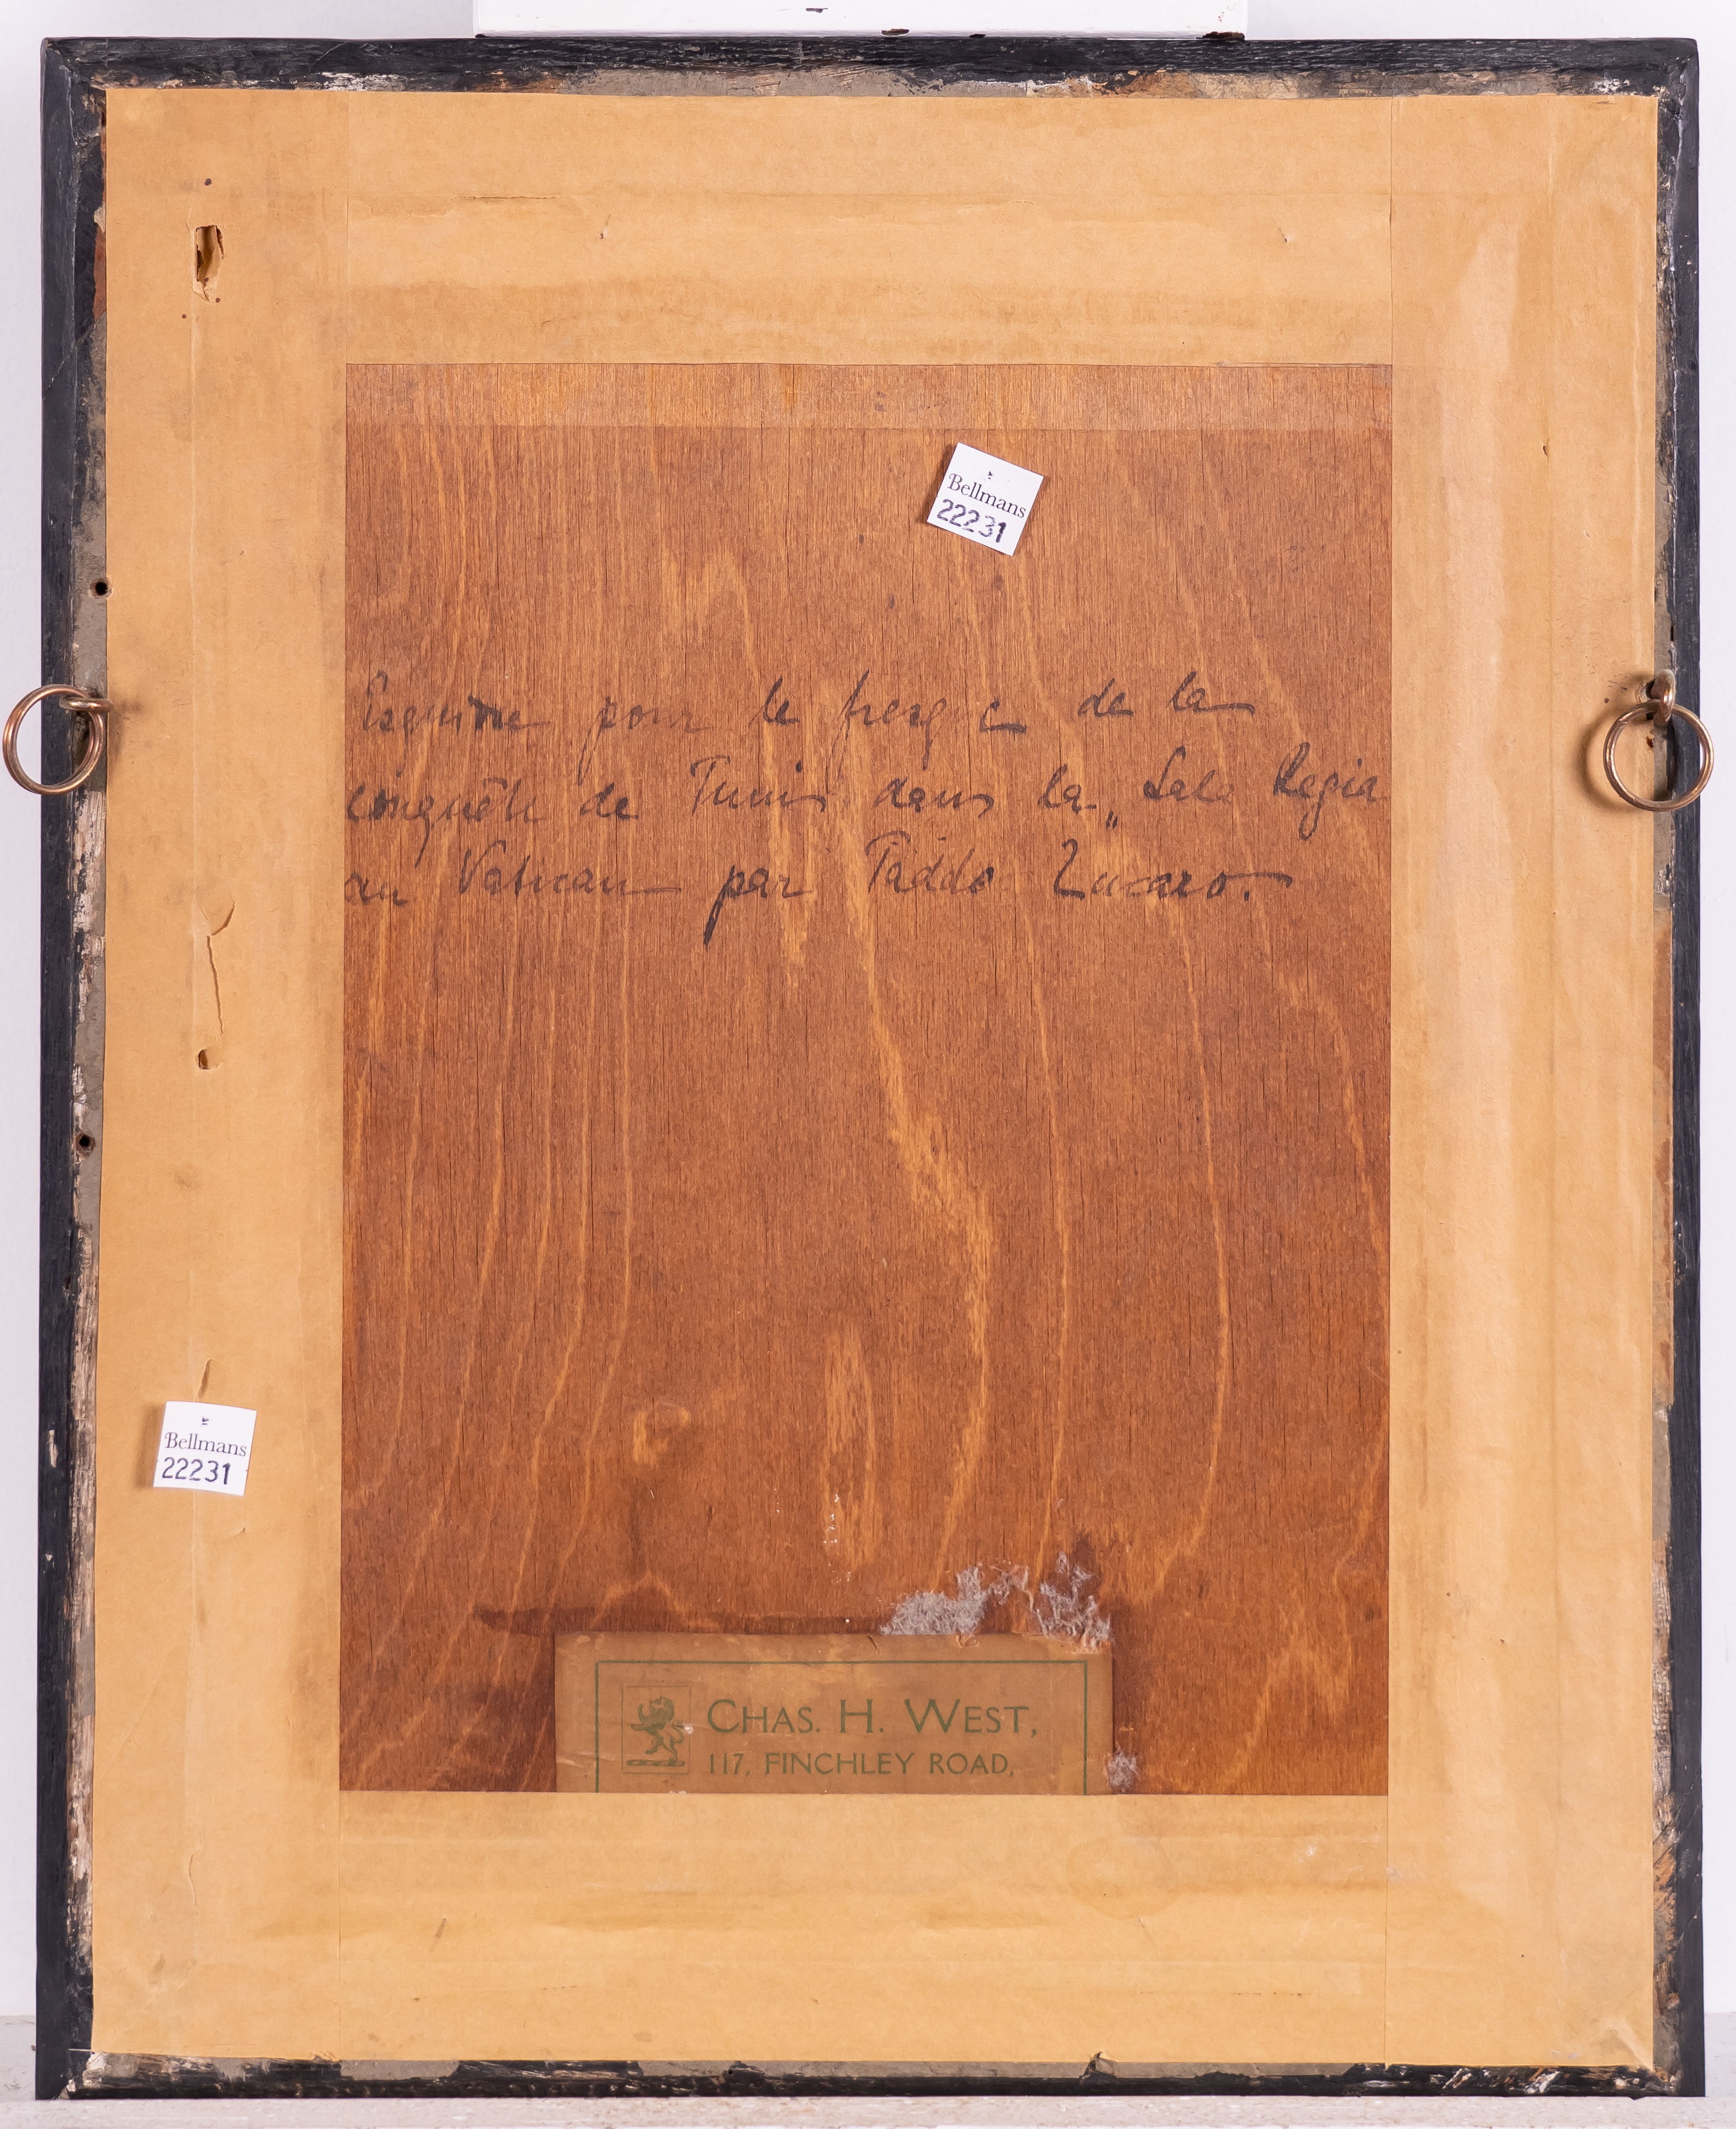 Bellmans
22231
Esquisse pour le fresque de la
conquête de Tunis dans la „Sala Regia
au Vatican par Taddo Zucaro.
Bellmans
22231
CHAS. H. WEST,
117, FINCHLEY ROAD,